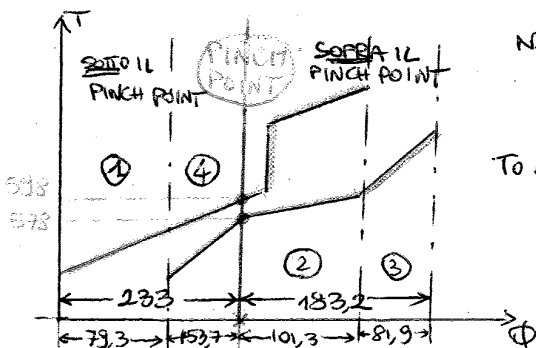 T
SOTTO IL
PINCH POINT
PINCH
POINT
SOPRA IL
PINCH POINT
N
TO
1
4
598
578
2
3
233
183,2
79,3
153,7
101,3
81,9
Φ